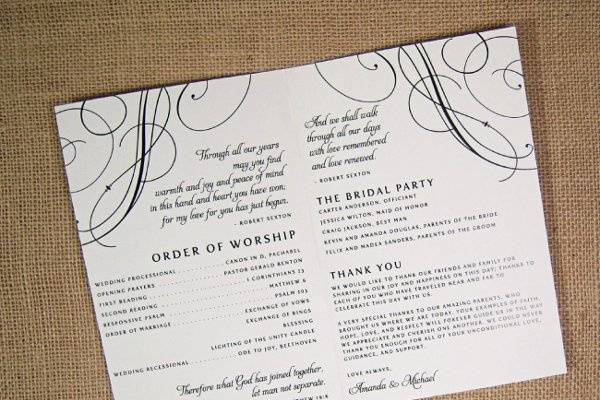 Through all our years
may you find
warmth and joy and peace of mind
in this hand and heart you have won;
for my love for you has just begun.
- ROBERT SEXTON
ORDER OF WORSHIP
WEDDING PROCESSIONAL CANON IN D, PACHABEL
OPENING PRAYERS PASTOR GERALD BENTON
FIRST READING 1 CORINTHIANS 13
SECOND READING MATTHEW 6
RESPONSIVE PSALM PSALM 103
ORDER OF MARRIAGE EXCHANGE OF VOWS
EXCHANGE OF RINGS
BLESSING
LIGHTING OF THE UNITY CANDLE
WEDDING RECESSIONAL ODE TO JOY, BEETHOVEN
Therefore what God has joined together,
let man not separate.
And we shall walk
through all our days
with love remembered
and love renewed.
- ROBERT SEXTON
THE BRIDAL PARTY
CARTER ANDERSON, OFFICIANT
JESSICA WILTON, MAID OF HONOR
CRAIG JACKSON, BEST MAN
KEVIN AND AMANDA DOUGLAS, PARENTS OF THE BRIDE
FELIX AND MADEA SANDERS, PARENTS OF THE GROOM
THANK YOU
WE WOULD LIKE TO THANK OUR FRIENDS AND FAMILY FOR
SHARING IN OUR JOY AND HAPPINESS ON THIS DAY; THANKS TO
EACH OF YOU WHO HAVE TRAVELED NEAR AND FAR TO
CELEBRATE THIS DAY WITH US.
A VERY SPECIAL THANKS TO OUR AMAZING PARENTS, WHO
BROUGHT US WHERE WE ARE TODAY. YOUR EXAMPLES OF FAITH,
HOPE, LOVE, AND RESPECT WILL FOREVER GUIDE US IN THE WAY
WE APPRECIATE AND CHERISH ONE ANOTHER. WE COULD NEVER
THANK YOU ENOUGH FOR ALL OF YOUR UNCONDITIONAL LOVE,
GUIDANCE, AND SUPPORT.
LOVE ALWAYS,
Amanda & Michael